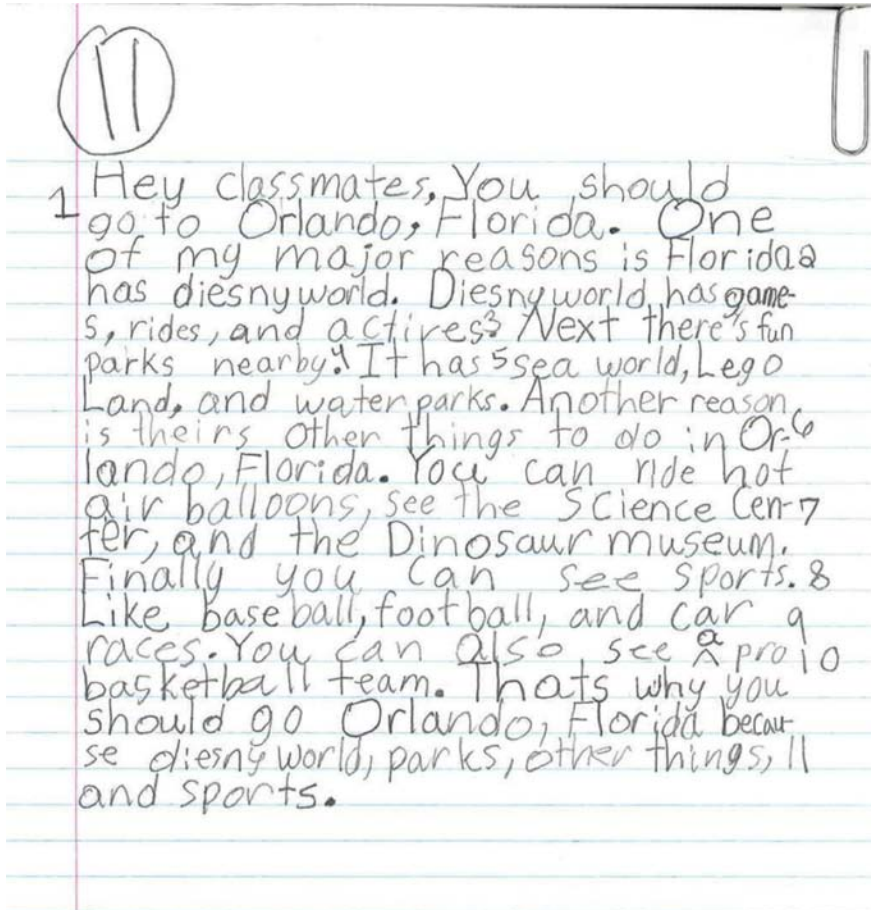 11
Hey classmates, You should
1 go to Orlando, Florida. One
of my major reasons is Florida 2
has diesnyworld. Diesnyworld has game-
s, rides, and actires. 3 Next there's fun
parks nearby. 4 It has 5 sea world, Lego
Land, and water parks. Another reason
is theirs other things to do in Or- 6
lando, Florida. You can ride hot
air balloons, see the Science Cen- 7
ter, and the Dinosaur museum.
Finally you can see sports. 8
Like baseball, football, and car 9
races. You can also see a pro 10
basketball team. Thats why you
should go Orlando, Florida becau-
se diesnyworld, parks, other things, 11
and sports.